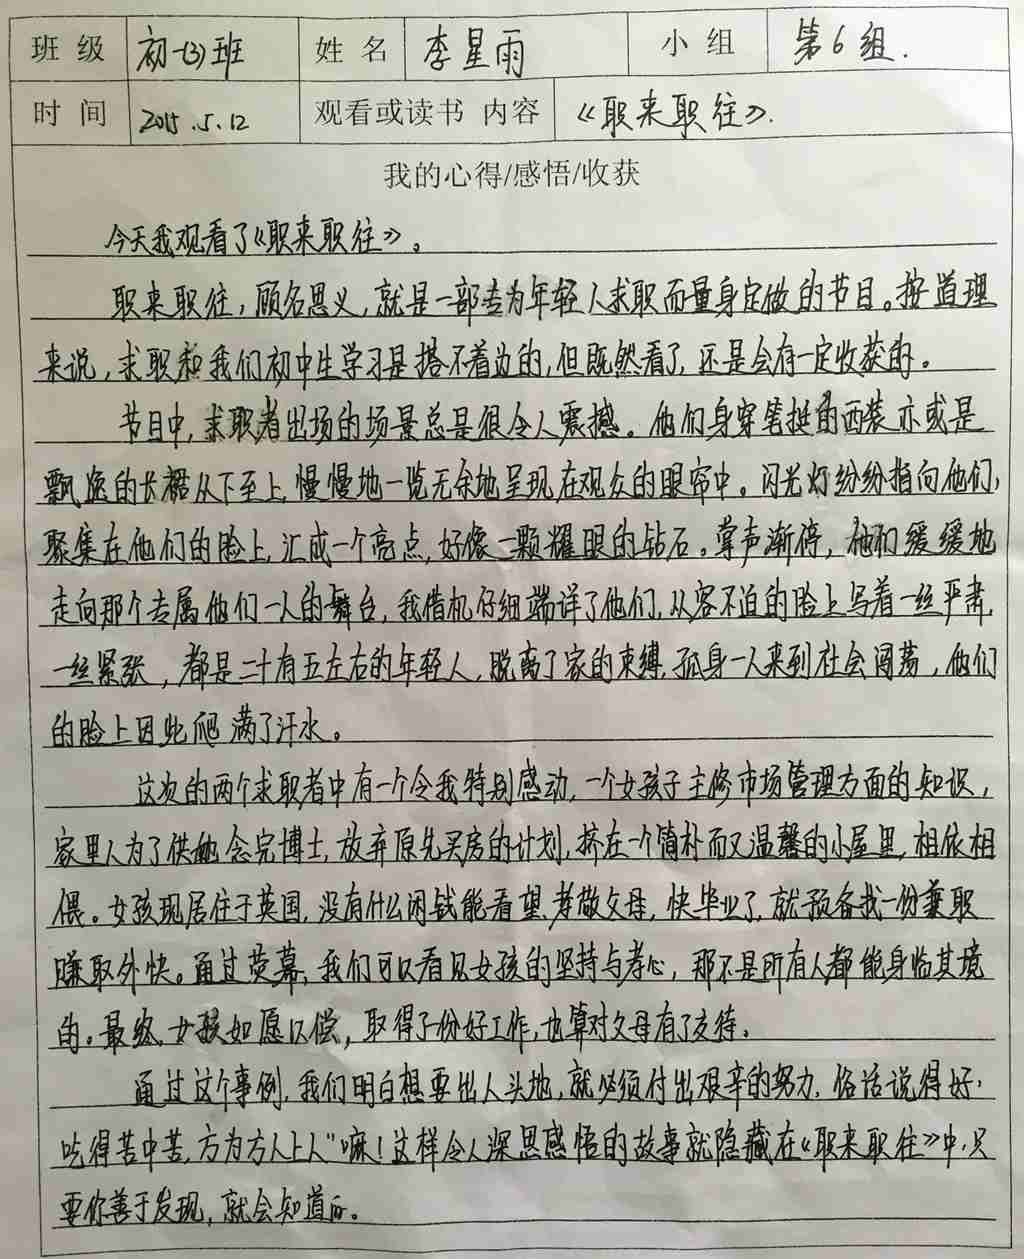 班级 初一(3)班 姓名 李星雨 小组 第6组.
时间 2015.5.12 观看或读书 内容 《职来职往》.
我的心得/感悟/收获
今天我观看了《职来职往》。
职来职往,顾名思义,就是一部专为年轻人求职而量身定做的节目。按道理
来说,求职和我们初中生学习是搭不着边的,但既然看了,还是会有一定收获的。
节目中,求职者出场的场景总是很令人震撼。他们身穿笔挺的西装亦或是
飘逸的长裙从下至上,慢慢地一览无余地呈现在观众的眼帘中。闪光灯纷纷指向他们,
聚集在他们的脸上,汇成一个亮点,好像一颗耀眼的钻石。掌声渐停,他们缓缓地
走向那个专属他们一人的舞台,我借机仔细端详了他们,从容不迫的脸上写着一丝严肃,
一丝紧张,都是二十有五左右的年轻人,脱离了家的束缚,孤身一人来到社会闯荡,他们
的脸上因此爬满了汗水。
这次的两个求职者中有一个令我特别感动,一个女孩子主修市场管理方面的知识,
家里人为了供她念完博士,放弃原先买房的计划,挤在一个简朴而又温馨的小屋里,相依相
偎。女孩现居住于英国,没有什么闲钱能看望、孝敬父母,快毕业了,就预备找一份兼职
赚取外快。通过荧幕,我们可以看见女孩的坚持与孝心,那不是所有人都能身临其境
的。最终,女孩如愿以偿,取得了份好工作,也算对父母有了支待。
通过这个事例,我们明白想要出人头地,就必须付出艰辛的努力,俗话说得好,
吃得苦中苦,方为方人上人"嘛!这样令人深思感悟的故事就隐藏在《职来职往》中,只
要你善于发现,就会知道的。